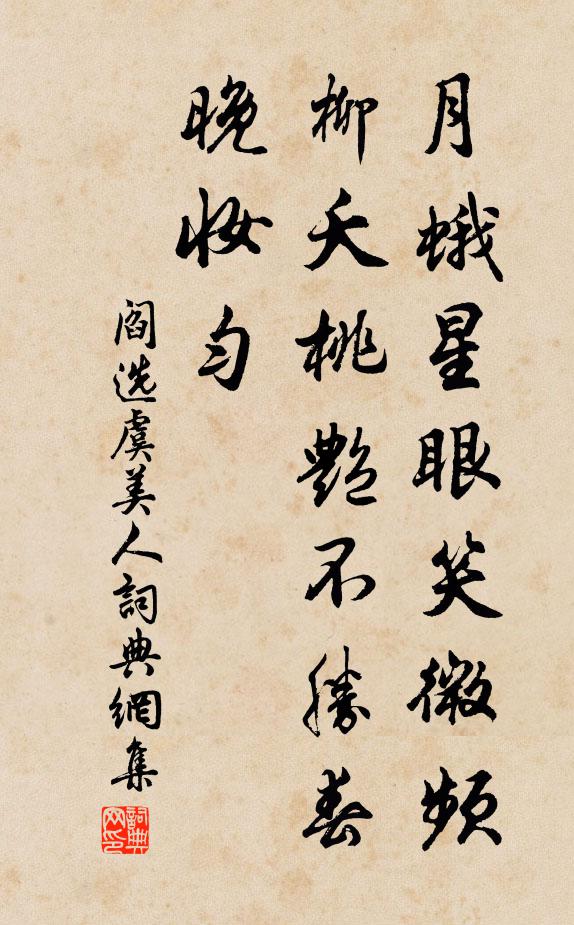 月蛾星眼笑微频
柳夭桃艷不勝春
晚妆匀
阎选虞美人詞典網集
詞典网印